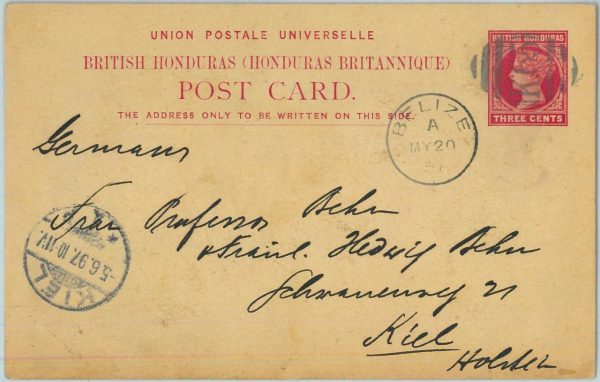 UNION POSTALE UNIVERSELLE
BRITISH HONDURAS (HONDURAS BRITANNIQUE)
POST CARD.
THE ADDRESS ONLY TO BE WRITTEN ON THIS SIDE.
BRITISH HONDURAS
THREE CENTS
BELIZE
A
MY 20
97
Germany
Frau Professor Behn
+ Fräul. Hedwig Behn
Schwanenweg 21
Kiel
Holstein
KIEL
-5.6.97.10-11V.